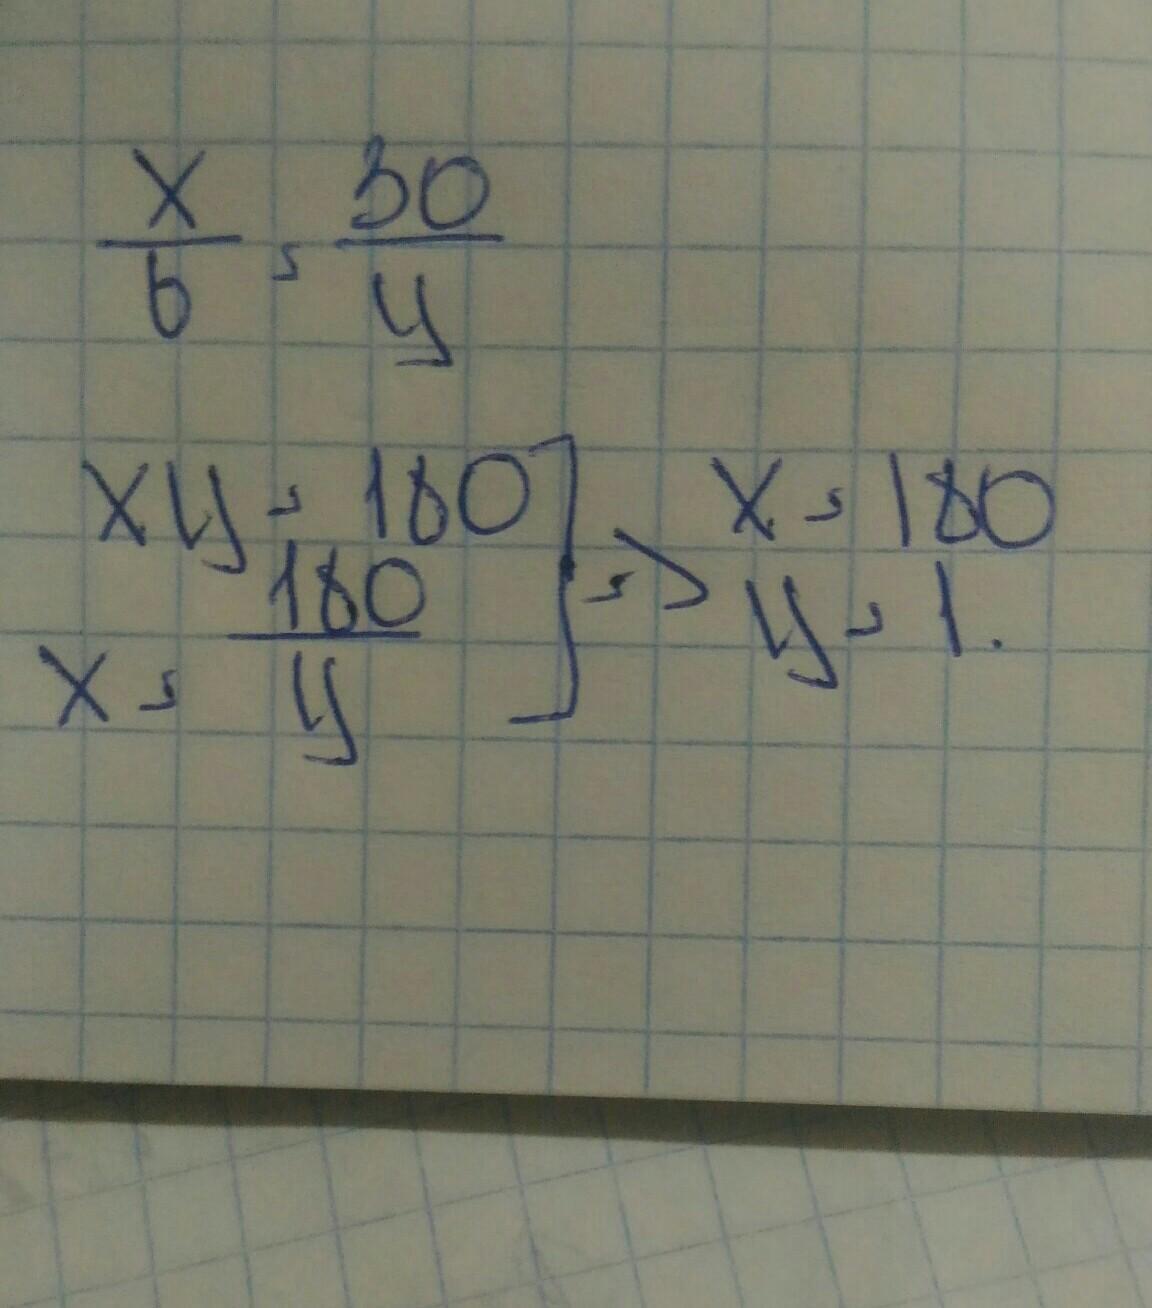 x/6 = 30/y
xy = 180
x = 180/y
=> x = 180
y = 1.